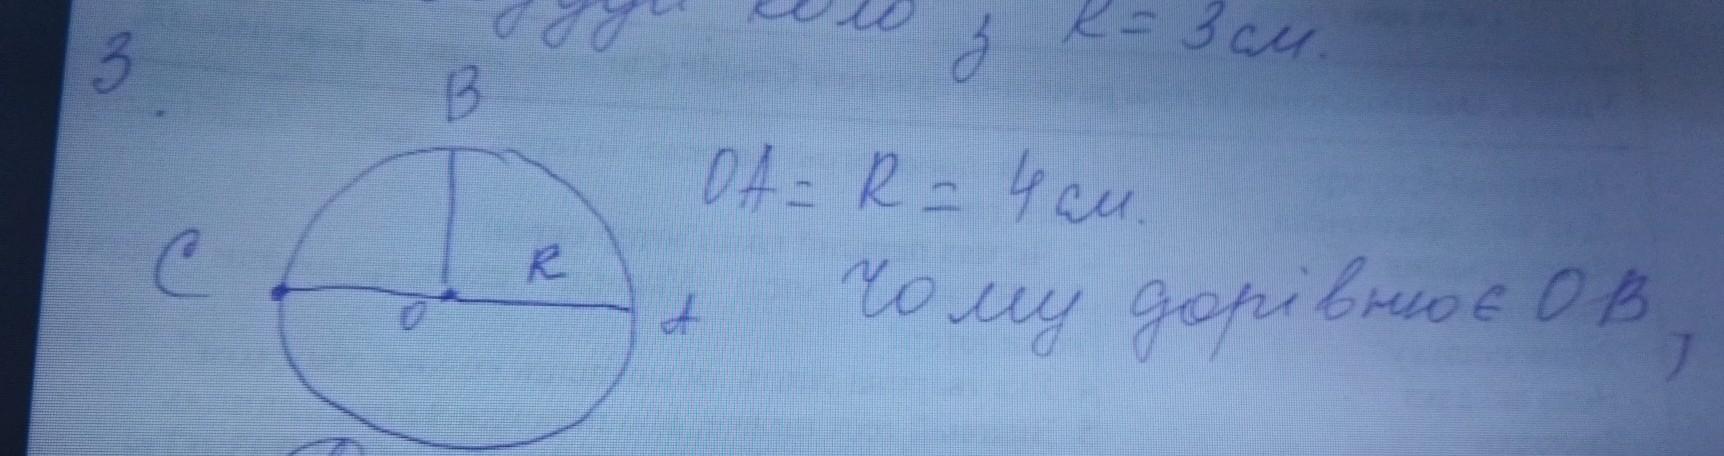 коло з R = 3 см.
3.
B
OA = R = 4 см.
C
R
O
A
Чому дорівнює OB,